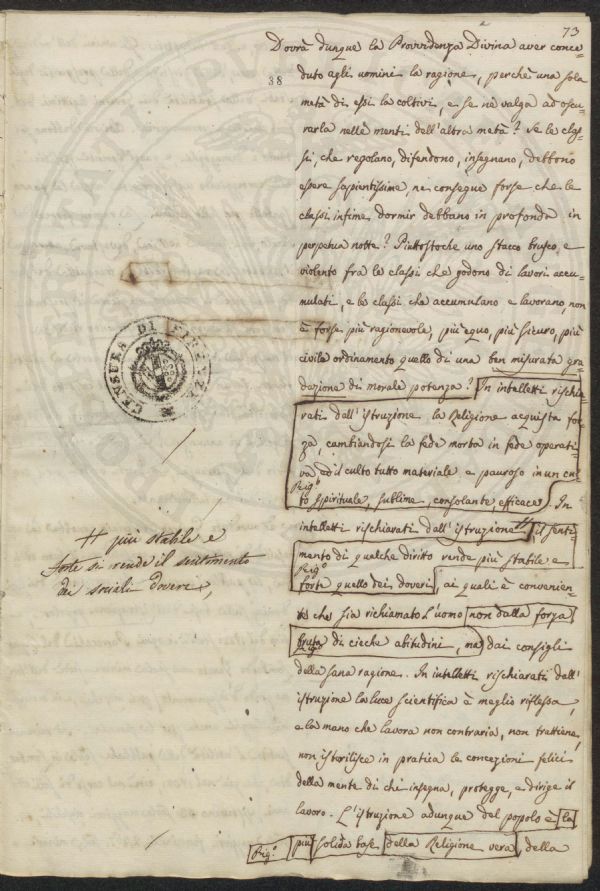 73
Dovrà dunque la Provvidenza Divina aver conce-
38
duto agli uomini la ragione, perchè una sola
metà di essi la coltivi, e se nè valga ad oscu-
rarla nelle menti dell'altra metà? Se le clas-
si, che regolano, difendono, insegnano, debbono
essere sapientissime, ne consegue forse che le
classi infime dormir debbano in profonda in
perpetua notte? Piuttostoche uno stacco brusco e
violento fra le classi che godono di lavori accu-
mulati, e le classi che accumulano e lavorano, non
è forse più ragionevole, più equo, più sicuro, più
civile ordinamento quello di una ben misurata gra-
dazione di morale potenza? In intelletti rischia-
rati dall'istruzione la Religione acquista for-
za, cambiandosi la fede morta in fede operati-
va ed il culto tutto materiale e pauroso in un cul-
Prig.º
to spirituale, sublime, consolante, efficace. In
intelletti rischiarati dall'istruzione // il senti-
mento di qualche diritto rende più stabile e
Prig.º
forte quello dei doveri, ai quali è convenien-
te che sia richiamato l'uomo non dalla forza
bruta di cieche abitudini, ma dai consigli
della sana ragione. In intelletti rischiarati dall'
istruzione la luce scientifica è meglio riflessa,
e la mano che lavora non contraria, non trattiene,
non isterilisce in pratica le concezioni felici
della mente di chi insegna, protegge, e dirige il
lavoro. L'istruzione adunque del popolo è la
Prig.º più solida base della Religione vera, della
CENSURA DI FIRENZE
// più stabile e
forte si rende il sentimento
dei sociali doveri,